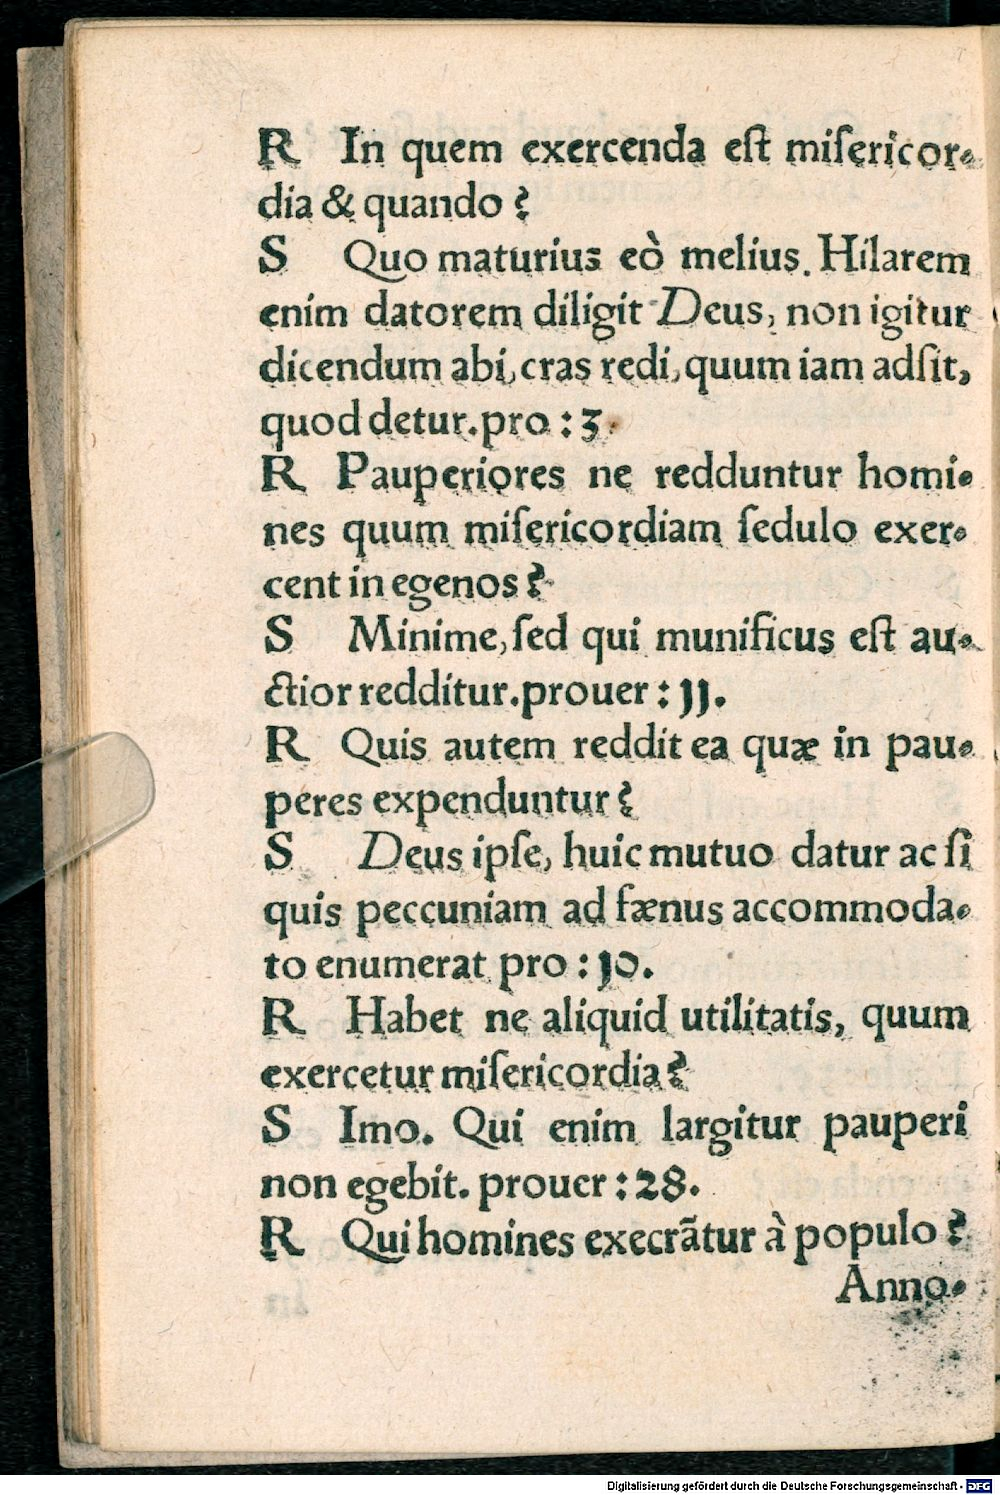 R In quem exercenda eſt miſericor-
dia & quando?
S Quo maturius eò melius. Hilarem
enim datorem diligit Deus, non igitur
dicendum abi, cras redi, quum iam adſit,
quod detur. pro: 3.
R Pauperiores ne redduntur homi-
nes quum miſericordiam ſedulo exer-
cent in egenos?
S Minime, ſed qui munificus eſt au-
ctior redditur. prouer: 11.
R Quis autem reddit ea quæ in pau-
peres expenduntur?
S Deus ipſe, huic mutuo datur ac ſi
quis peccuniam ad fænus accommoda-
to enumerat pro: 10.
R Habet ne aliquid utilitatis, quum
exercetur miſericordia?
S Imo. Qui enim largitur pauperi
non egebit. prouer: 28.
R Qui homines execrãtur à populo?
Anno-
Digitalisierung gefördert durch die Deutsche Forschungsgemeinschaft - DFG